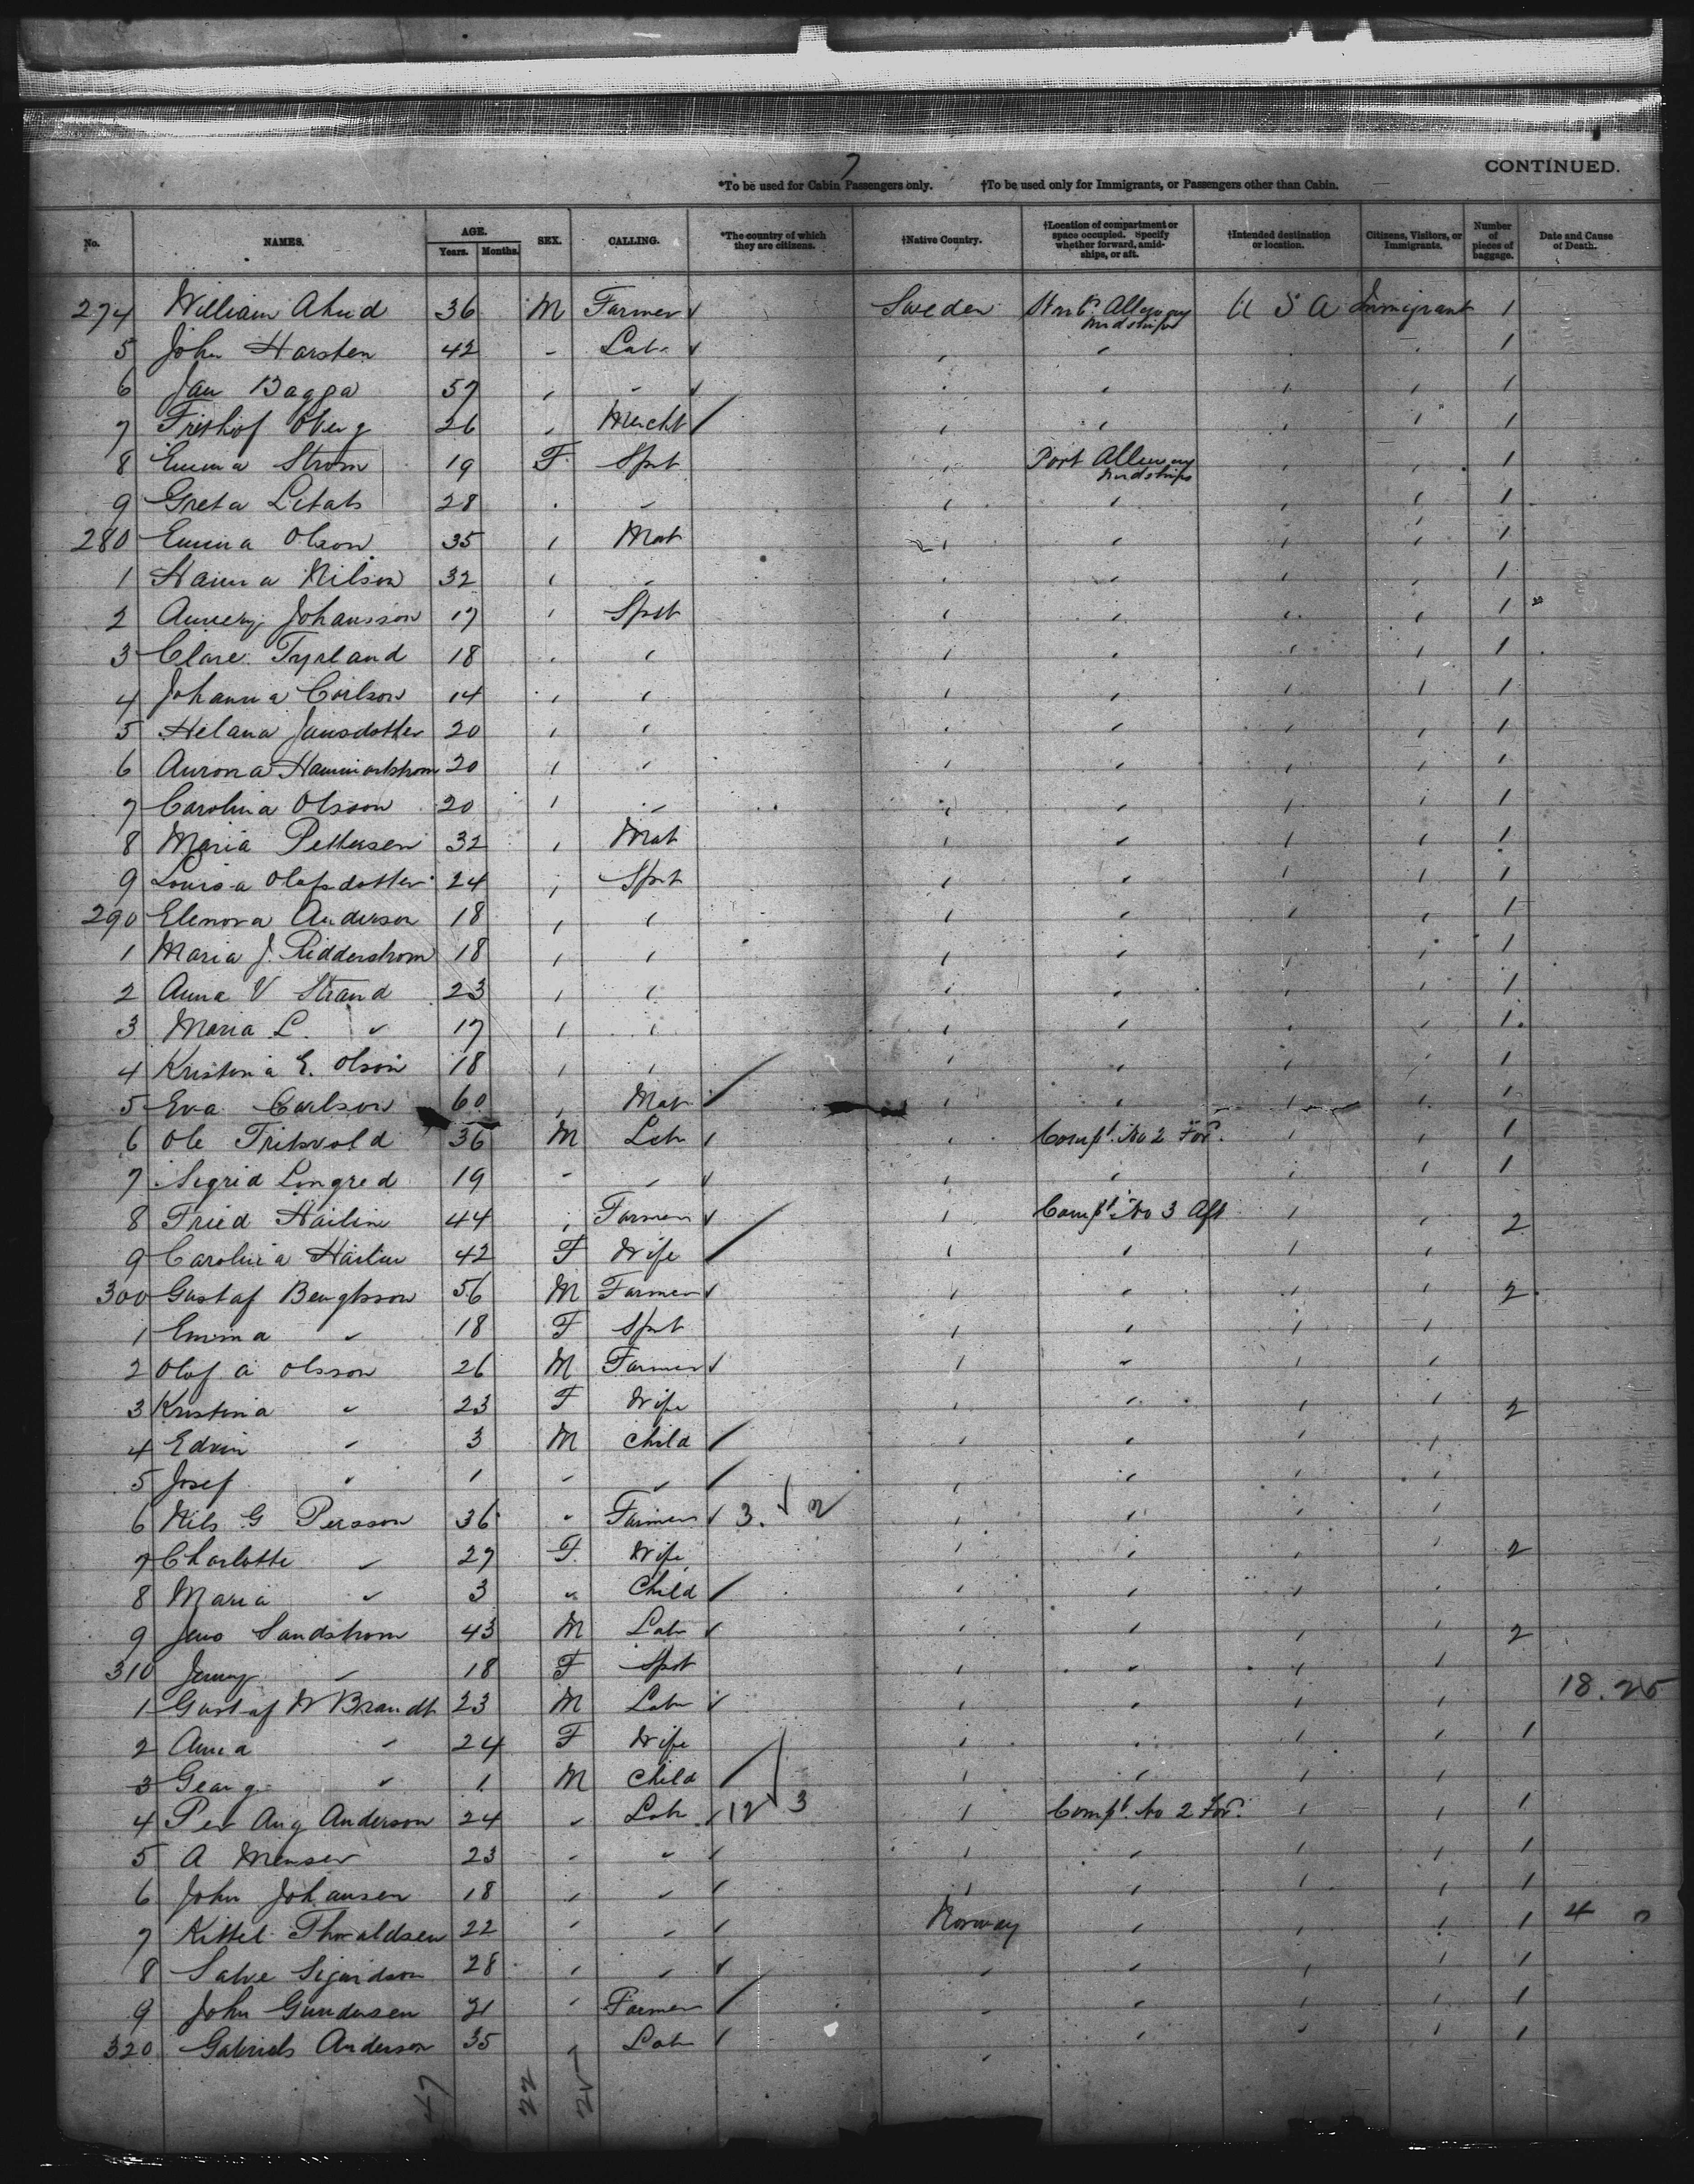 7
CONTINUED.
*To be used for Cabin Passengers only. †To be used only for Immigrants, or Passengers other than Cabin.
No. NAMES. AGE. Years. Months. SEX. CALLING. *The country of which they are citizens. †Native Country. †Location of compartment or space occupied. Specify whether forward, amidships, or aft. †Intended destination or location. Citizens, Visitors, or Immigrants. Number of pieces of baggage. Date and Cause of Death.
274 William 36 M Farmer Sweden Allyway midships U S A Immigrant 1
5 John Harsten 42 " Lab. 1
6 Jan Bagga 57 " " 1
7 Frithiof Oberg 26 " Mercht 1
8 Emma Strom 19 F Spst Port Alleway midships 1
9 Greta 28 " " 1
280 Emma Olson 35 " Mat 1
1 Hanna Nilson 32 " " 1
2 Johansson 17 " Spst 1
3 Clare Tyrland 18 " " 1
4 Johanna Carlson 14 " " 1
5 Helana Jansdotter 20 " " 1
6 Aurora Hammarstrom 20 " " 1
7 Carolina Olsson 20 " " 1
8 Maria Pettersen 32 " Mat 1
9 Louisa Olofsdotter 24 " Spst 1
290 Elenora Anderson 18 " " 1
1 Maria J. Ridderstrom 18 " " 1
2 Anna V Strand 23 " " 1
3 Maria L. " 17 " " 1
4 Kristina E. Olson 18 " " 1
5 Eva Carlson 60 " Mat 1
6 Ole 36 M Lab Compt No 2 For. 1
7 Sigrid Longred 19 " " 1
8 Fried Hailin 44 " Farmer Compt No 3 Aft 2
9 Carolina Hailin 42 F Wife
300 Gustaf Bengtsson 56 M Farmer 2
1 Emma " 18 F Spst
2 Olof A Olsson 26 M Farmer
3 Kristina " 23 F Wife 2
4 Edvin " 3 M Child
5 Josef " 1 " "
6 Nils G Persson 36 " Farmer 3. 2
7 Charlotte " 27 F. Wife 2
8 Maria " 3 " Child
9 Jens Sandstrom 43 M Lab 2
310 Jenny " 18 F Spst
1 Gustaf W Brandt 23 M Lab 18.25
2 Anna " 24 F Wife 1
3 Georg " 1 M Child
4 Per Aug Anderson 24 " Lab 12 3 Compt. No 2 For. 1
5 A Menser 23 " " 1
6 John Johansen 18 " " 1
7 Kittel Thoraldsen 22 " " Norway 1 4
8 Salve Sigurdson 28 " " 1
9 John Gundersen 21 " Farmer 1
320 Gabriels Anderson 35 " Lab 1
47 22 25